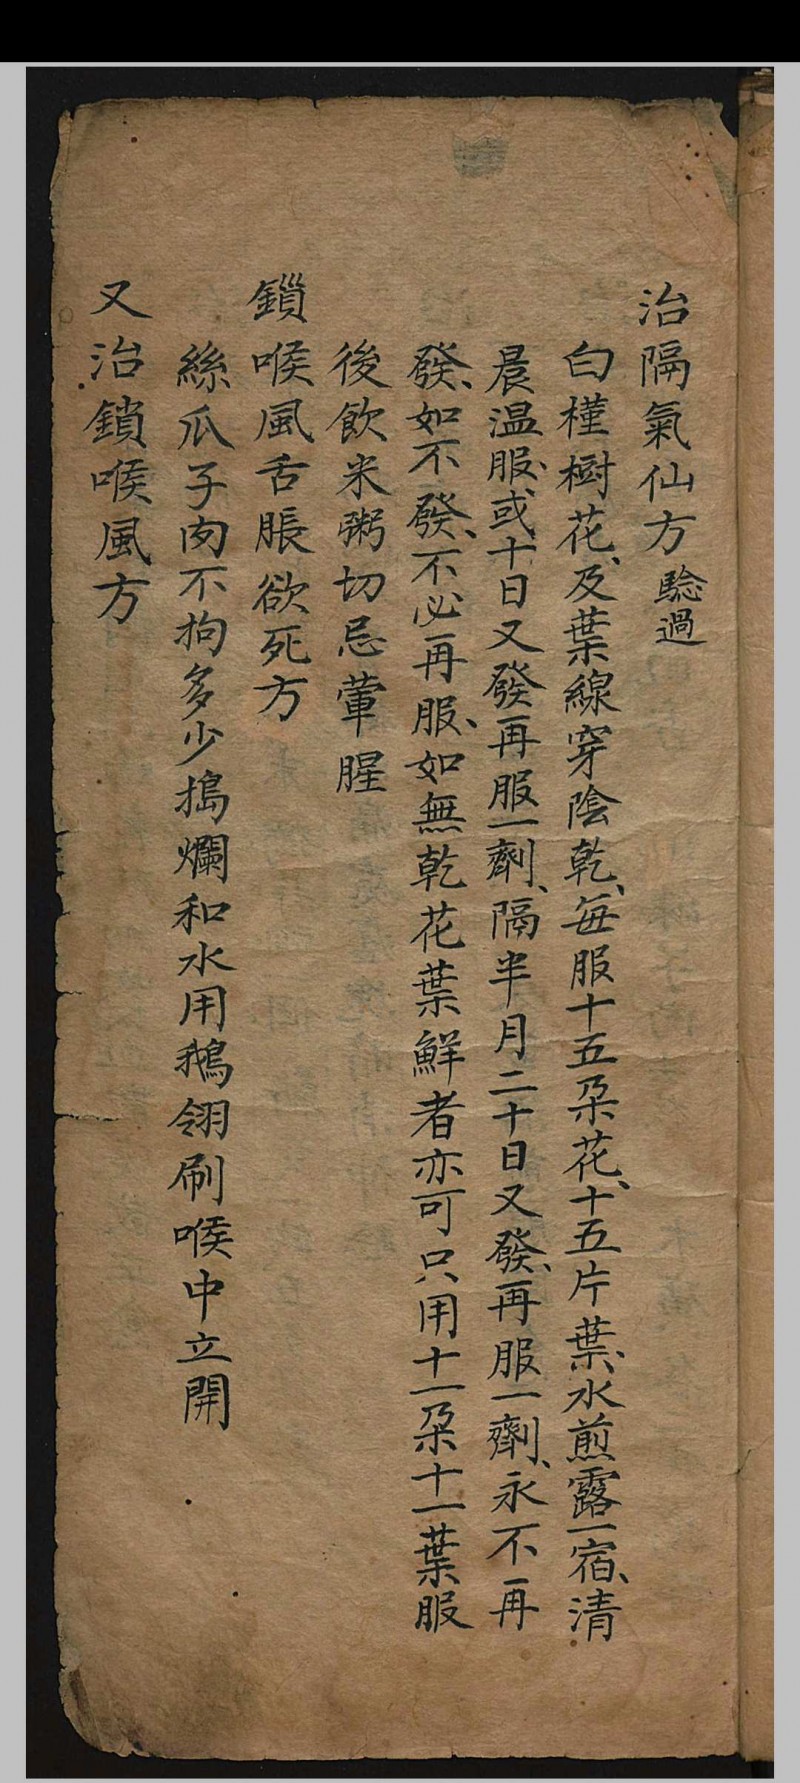 治隔氣仙方 驗過
白槿樹花、及葉線穿陰乾、每服十五朶花、十五片葉、水煎露一宿、清
晨温服、或十日又發再服一劑、隔半月二十日又發、再服一劑、永不再
發、如不發、不必再服、如無乾花葉鮮者亦可只用十一朶十一葉服
後飲米粥切忌葷腥
鎖喉風舌脹欲死方
絲瓜子肉不拘多少搗爛和水用鵝翎刷喉中立開
又治鎖喉風方